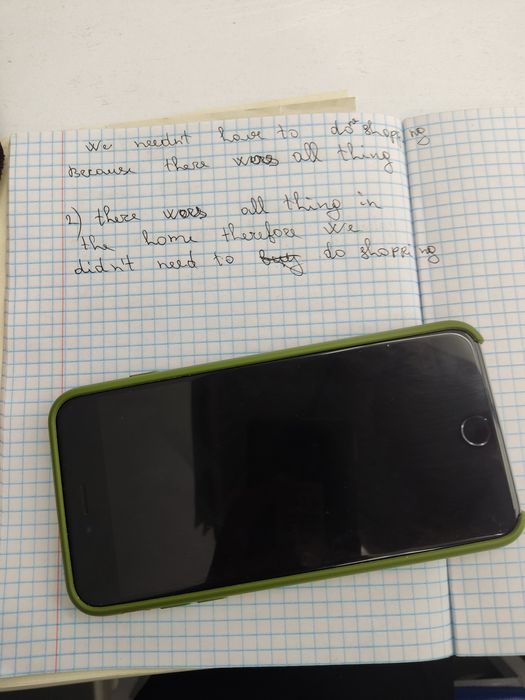 We needn't have to do shopping
Because there was all thing
2) there was all thing in
the home therefore we
didn't need to buy do shopping